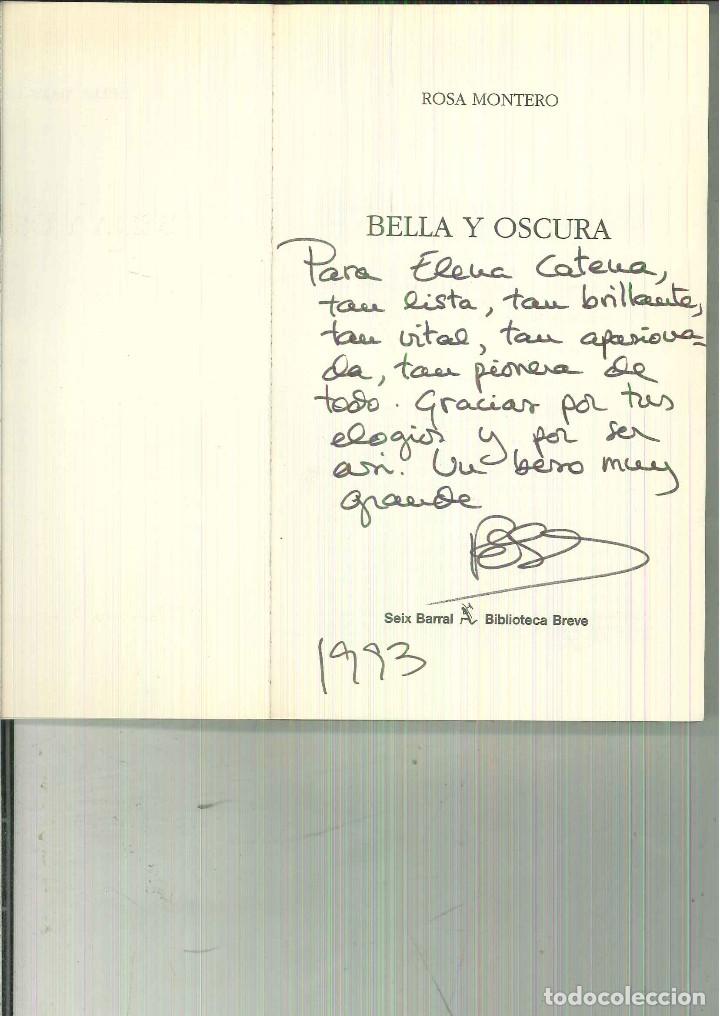 ROSA MONTERO
BELLA Y OSCURA
Para Elena Catena,
tan lista, tan brillante,
tan vital, tan apasiona-
da, tan pionera de
todo. Gracias por tus
elogios y por ser
así. Un beso muy
grande
Seix Barral Biblioteca Breve
1993
todocoleccion